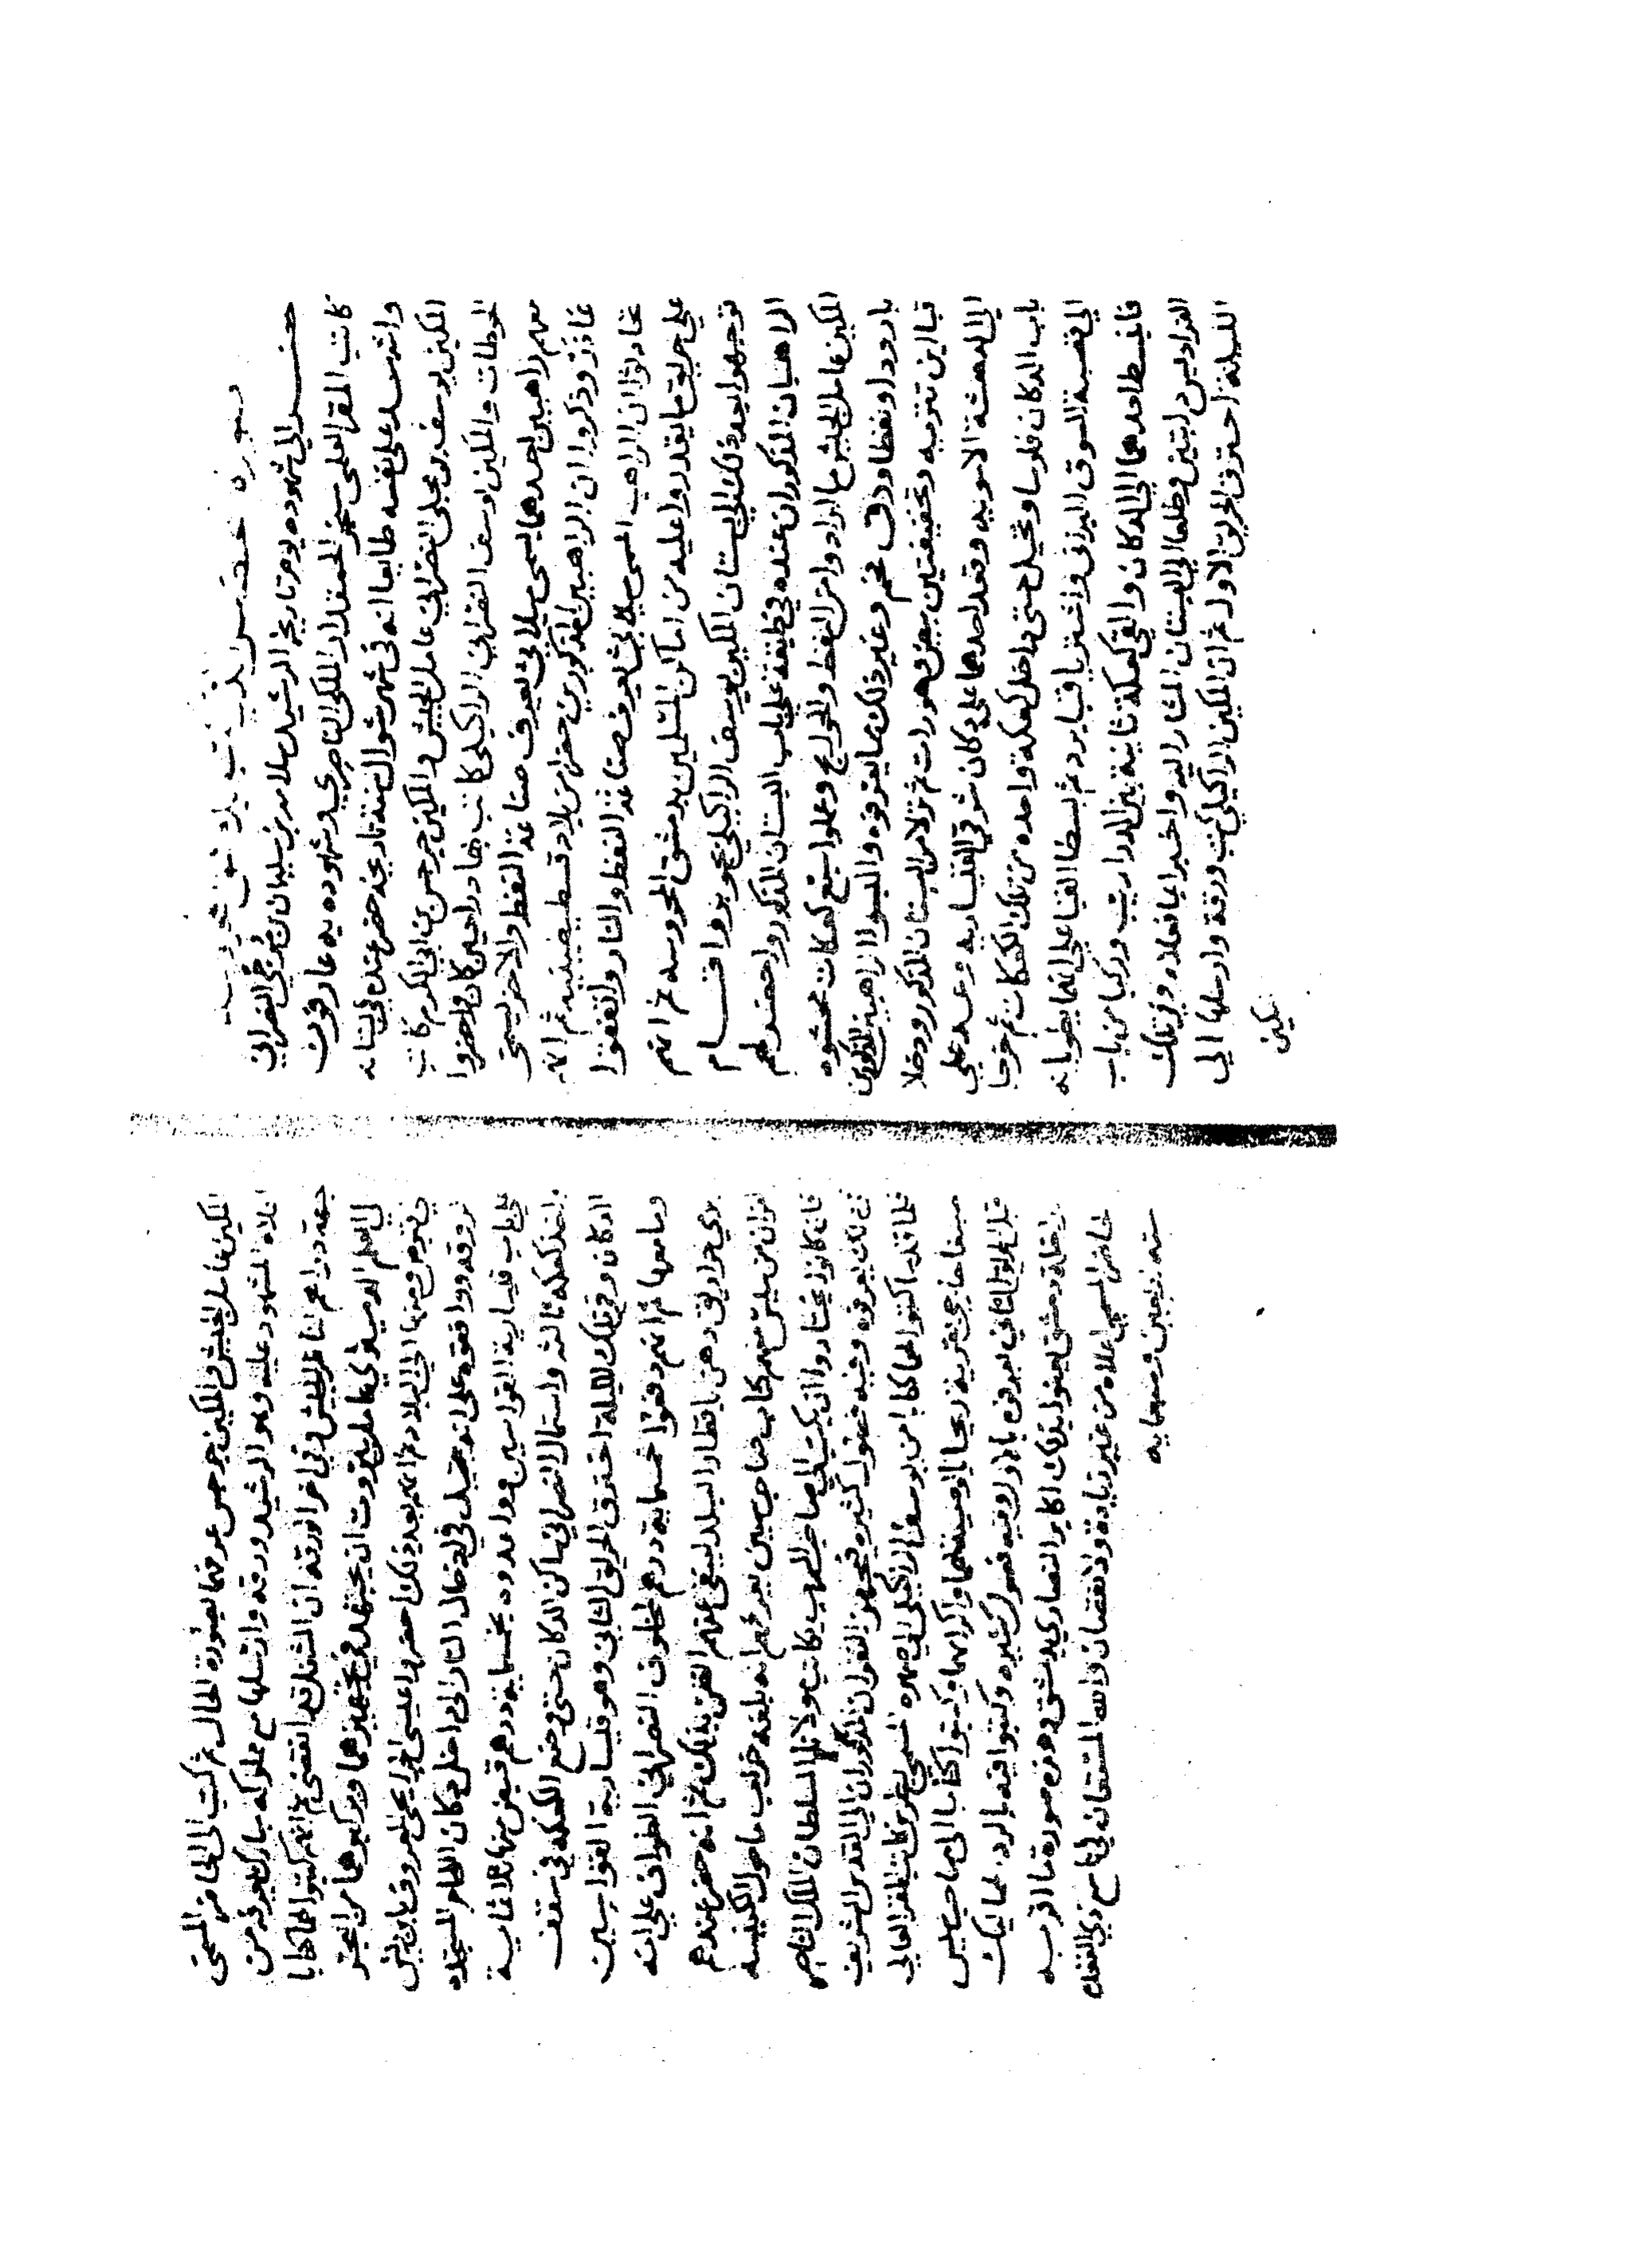 صورة محضر
حضر الى شهوده يوم تاريخه الرشيد سلامه بن سليمان بن مرجي النصراني
كاتب المقر العلمي سنجر الملكي الناصري وشهوده به عارفون
واشهد على نفسه طايعا انه في شهر شوال سنة تاريخه حضر عنده في بستانه
المكين يوسف بن مجلى النصراني عامل الجيش والمكين جرجس بن ابي الكرم كاتب
الحوطات والمكين يوسف النصراني الراكيلي كاتب بهادر كان واحضروا
معهم راهبين احدهما يسمى ميلاني يعرف صناعة النفط والاخر يسمى
عازر وذكروا ان الراهبين المذكورين حضرا من بلاد قسطنطينيه ثم انه
تحادثوا ان الراهب المسمى ميلاني يعرف صناعة النفط والنار واتفقوا
على حريق ما يقدروا عليه من اماكن المسلمين بدمشق المحروسه ثم انهم
توجهوا بعد ذلك الى بستان المكين يوسف الراكيلي بجوبر واقام
الراهبان المذكوران عنده في طبقة على باب البستان المذكور واحضر لهم
المكين عامل الجيش ما ارادوا من النفط والحوايج وعملوا سبع كعكات محشوه
بارودا ونفطا ودق فحم وغير ذلك مما يعرفوه والبسوا الراهبين المذكورين
قباين تتريه وتخفيفتين بيض ثم نزلا من البستان المذكور ودخلا
الى الدهشة وقعد احدهما على دكان شرقي القيساريه على
باب الدكان فلوسا وتحيل حتى داخل كعكة واحده من تلك الكعكات ثم خرجا
الى قصبة السوق البراني واشتريا قبا برد ثم بسطا القبا على انهما يطويانه
فانبسط احدهما الى الدكان والقى كعكة ثانية بين الدراريب وركبا من باب
الفراديس دابتين وطلعا الى البستان المشار اليه واخبرا بما فعلاه وفي تلك
الليلة احترق الحريق الاول ثم ان المكين الراكيلي كتب ورقة وارسلها الى
المكين
المكين عامل الجيش والمكين جرجس عرفهما بصورة الحال ثم كتب الى الحاضر المسمى
اعلاه المشهود عليه وهو الرشيد ورقه وارسلها مع مملوكه مبارك يعرفه من
جهة دراهم لناظر الجيش وفي اخر الورقه ان الشغل قد انقضى ثم انهم كتبوا لهما كتابا
الى العلم عامل بيروت ان يجتهد في تجهيزهما ويركبوهما من البحر
الى قبرص ومنها الى البلاد ثم انهم بعد ذلك احضروا عيسى الجرايحي المعروف بابن القس
ورقه ووافقوه على انه يتحيل في ادخال النار الى داخل دكان المستجده
على باب قيسارية القواسين وواعدوه بخمسماية درهم قبض منها ثلاثماية
واخذ كعكه ثالثه واستمال النصراني ساكن الدكان حتى وضع الكعكه في سقف
الدكان وفي تلك الليلة احترق الحريق الثاني وهو قيسارية القواسين
وما معها ثم انهم دفعوا خمسماية درهم لمخلوف النصراني الطواف على انه
يرمي حراريق دهن باقطار البلد لينفى عنهم الظن بذلك ثم انه حضر عندهم
من سيس معهم كتاب صاحب سيس يعرفهم انه بلغه خراب ما حول الكنيسه
فان كانوا يختاروا ان يكتب الى صاحب يكاتب مولانا السلطان الملك الناصر
في ذلك يعرفوه وفيه فصول كثيره فتجهز المذكوران الى القدس الشريف
فلما قدما كتبوا لهما كتابا من يوسف الراكيلي الى صهره المسمى بطرس كاتب المقر العالي
بقرية ريحا بالوصية بهما واكرامهما وكتبوا كتابا الى صاحب سيس
قبل الحريق الثاني يعرفوه وفيه فصول كثيره وكتبوا فيه مماليك
داخلة دمشق يعنوا بذلك اكابر النصارى بدمشق وهذه صورة ما اقر به
الحاضر المسمى اعلاه من غير زيادة ولا نقصان والله المستعان في تاسع ذي القعده
سنه اربعين وسبعمايه